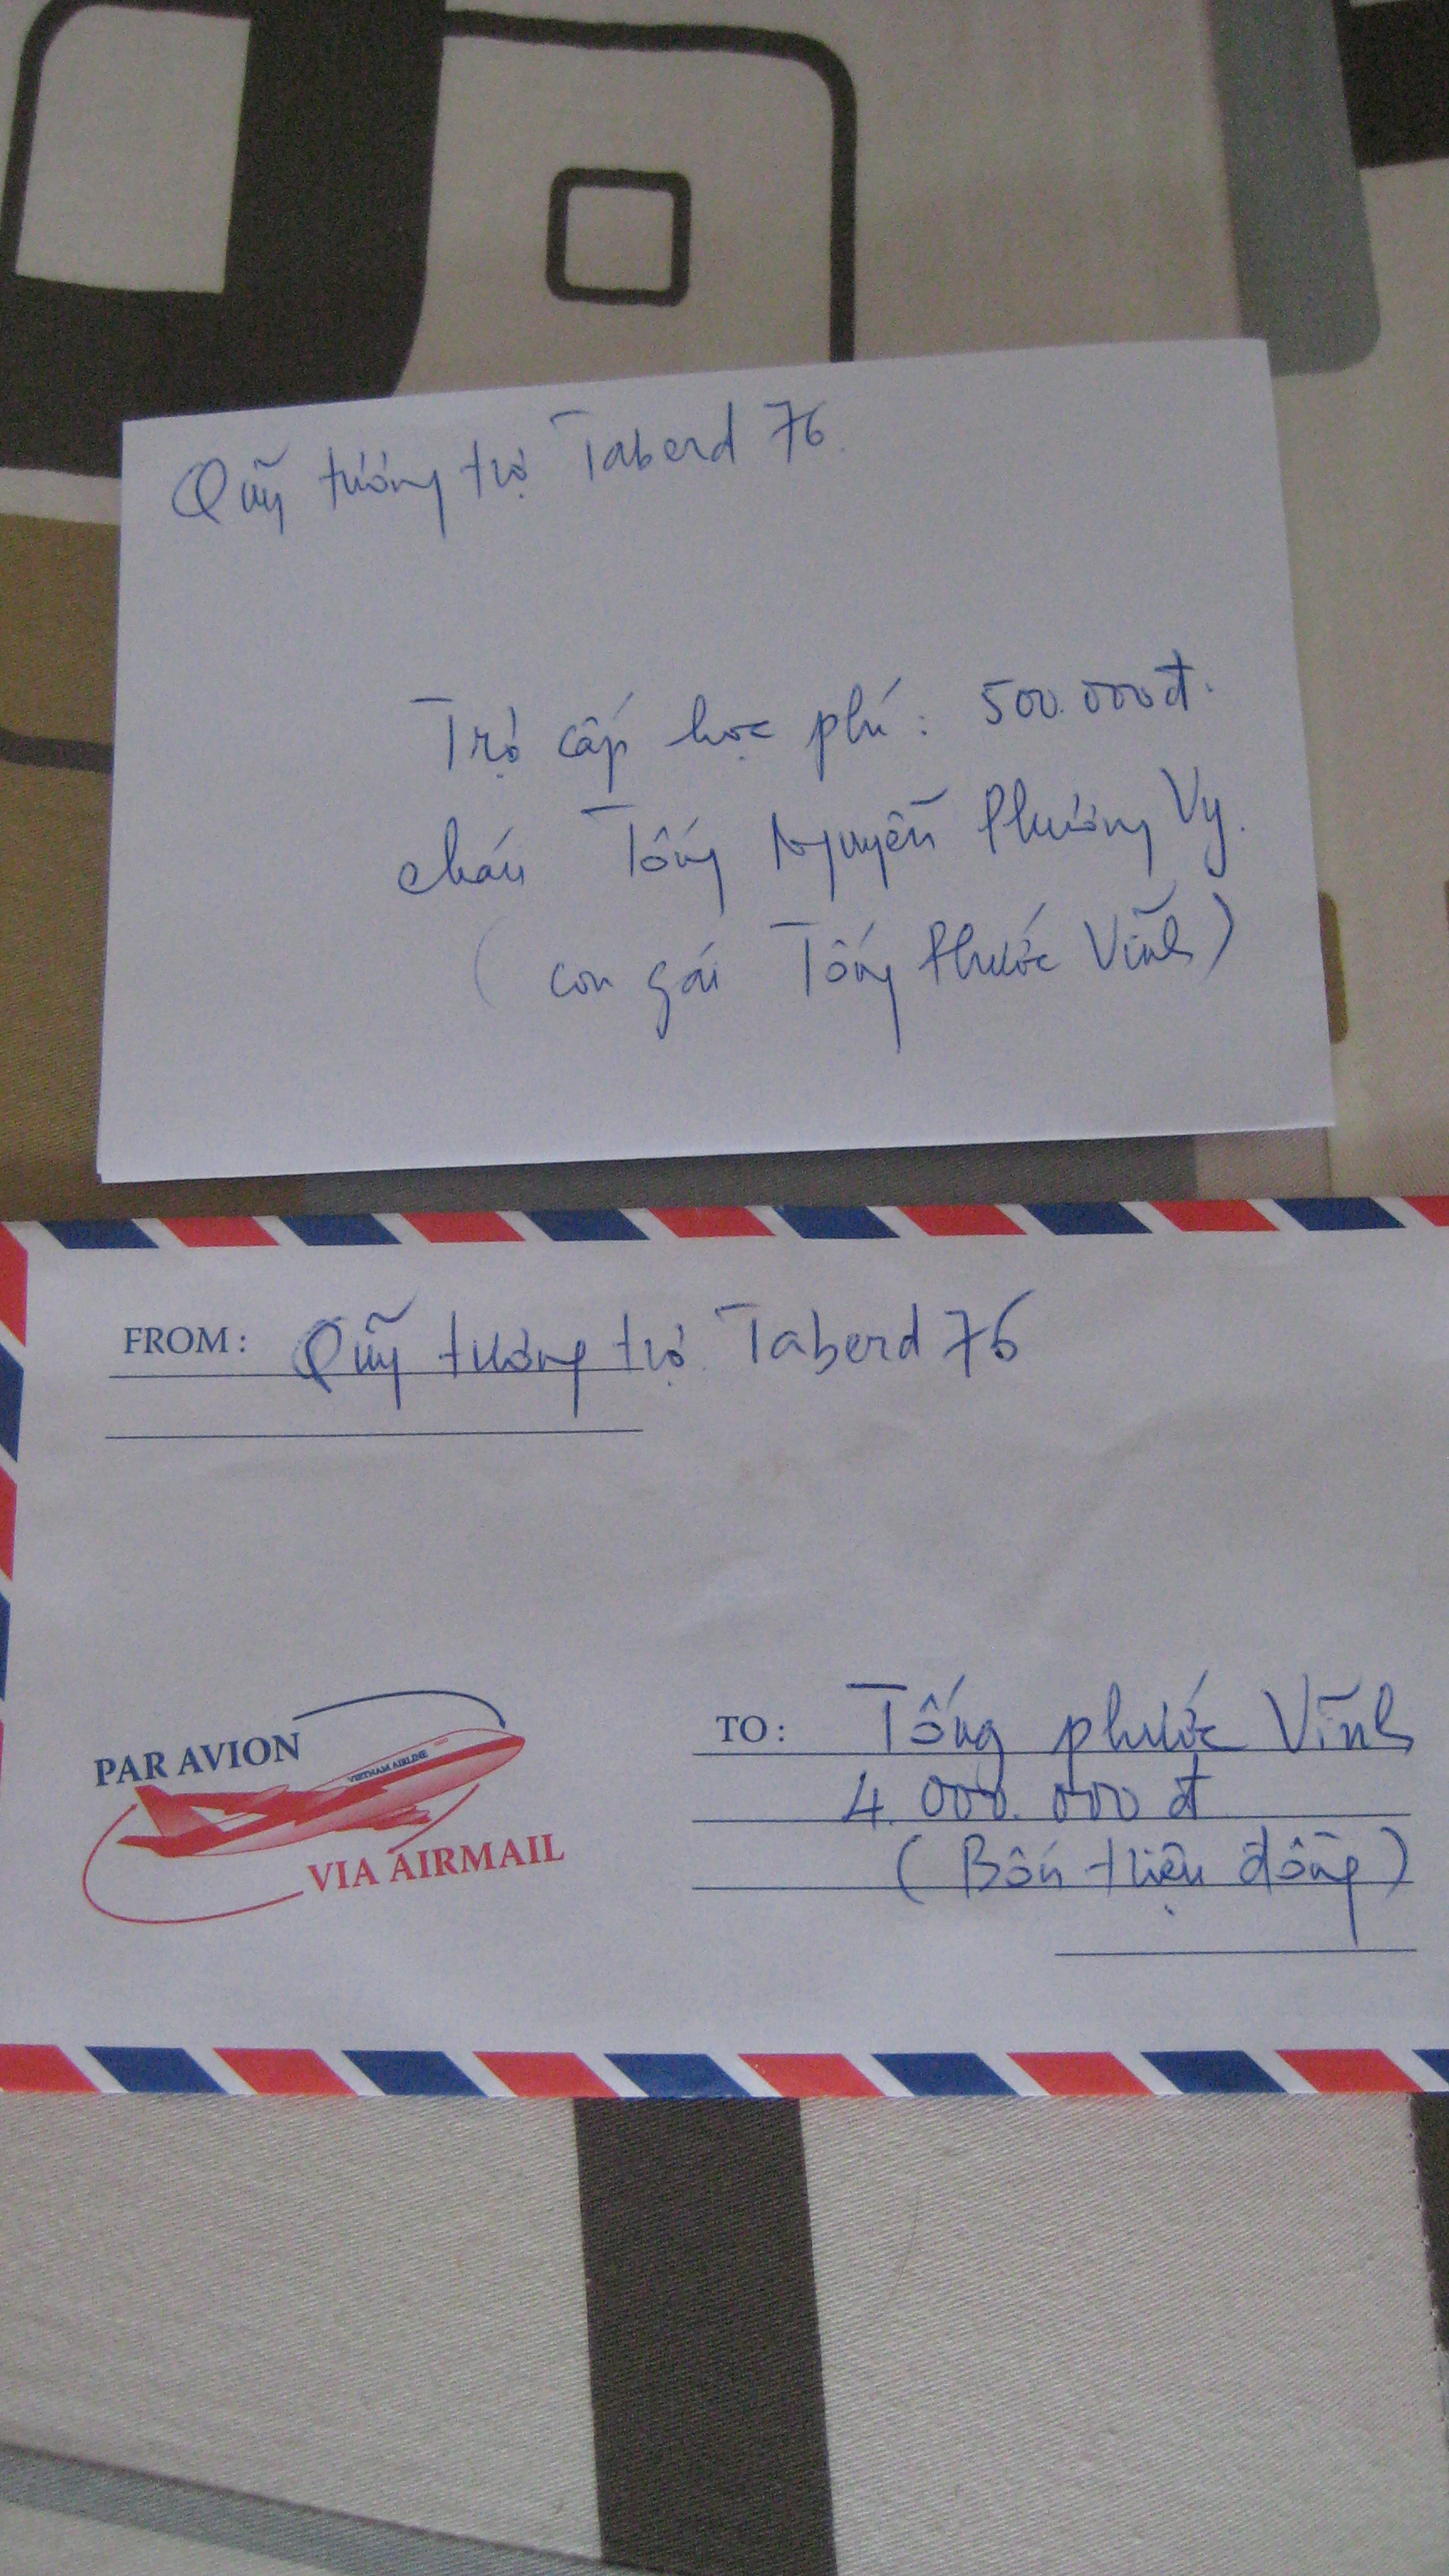 Quỹ tương trợ Taberd 76.
Trợ cấp học phí : 500.000đ.
cháu Tống Nguyễn Phương Vy.
( con gái Tống Phước Vĩnh )
FROM : Quỹ tương trợ Taberd 76
PAR AVION
VIETNAM AIRLINE
VIA AIRMAIL
TO : Tống phước Vĩnh
4.000.000 đ
( Bốn triệu đồng )